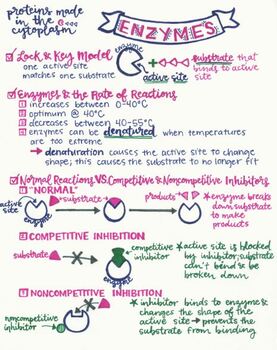 proteins made
in the
cytoplasm
ENZYMES
Lock & Key Model
one active site
matches one substrate
enzyme
active site
substrate that
binds to active
site
Enzymes & the Rate of Reactions
1 increases between 0-40°C
2 optimum @ 40°C
3 decreases between 40-55°C
4 enzymes can be denatured when temperatures
are too extreme
→ denaturation causes the active site to change
shape; this causes the substrate to no longer fit
Normal Reactions VS. Competitive & Noncompetitive Inhibitors
1 "NORMAL"
active
site
substrate
enzyme
products
*enzyme breaks
down substrate
to make
products
2 COMPETITIVE INHIBITION
substrate
enzyme
competitive
inhibitor
*active site is blocked
by inhibitor; substrate
can't bind & be
broken down
3 NONCOMPETITIVE INHIBITION
noncompetitive
inhibitor
*inhibitor binds to enzyme &
changes the shape of the
active site → prevents the
substrate from binding